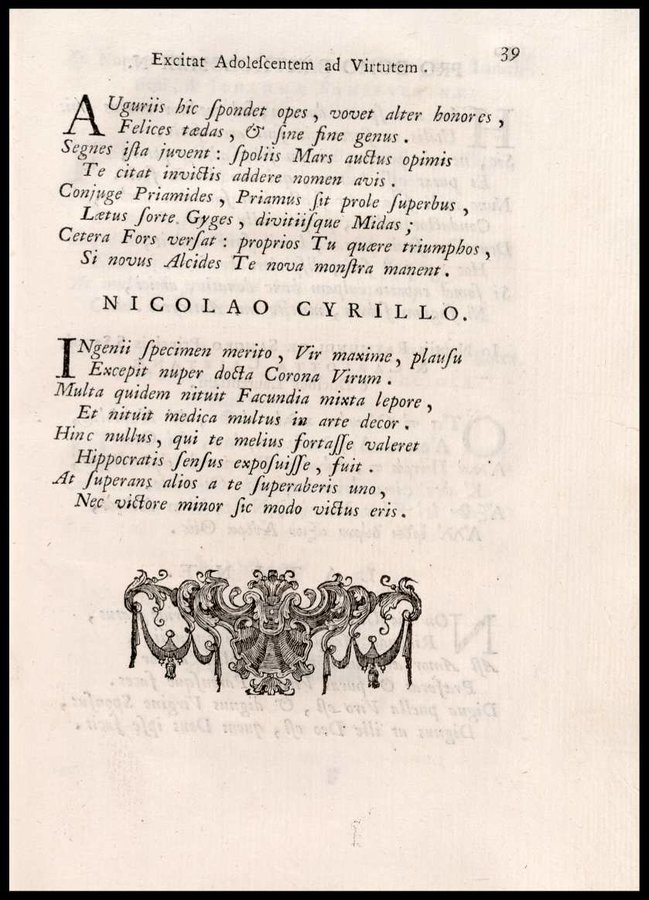 39
Excitat Adoleſcentem ad Virtutem.
AUguriis hic ſpondet opes, vovet alter honores,
Felices tædas, & ſine fine genus.
Segnes iſta juvent: ſpoliis Mars auctus opimis
Te citat invictis addere nomen avis.
Conjuge Priamides, Priamus ſit prole ſuperbus,
Lætus ſorte Gyges, divitiiſque Midas;
Cetera Fors verſat: proprios Tu quære triumphos,
Si novus Alcides Te nova monſtra manent.
NICOLAO CYRILLO.
INgenii ſpecimen merito, Vir maxime, plauſu
Excepit nuper docta Corona Virum.
Multa quidem nituit Facundia mixta lepore,
Et nituit medica multus in arte decor.
Hinc nullus, qui te melius fortaſſe valeret
Hippocratis ſenſus expoſuiſſe, fuit.
At ſuperans alios a te ſuperaberis uno,
Nec victore minor ſic modo victus eris.